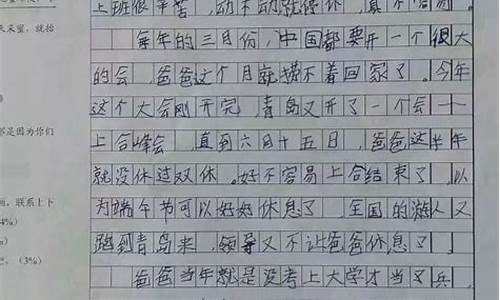 上班很辛苦，动不动就停休，真不容易。
每年的三月份，中国都要开一个很大
的会，爸爸这个月就横不着回家了。今年
这个大会刚开完，青岛又开了一个会——
上合峰会，直到六月十五日，爸爸这半年
就没休过双休。好不容易上合结束了，以
为端午节可以好好休息了，全国的游人又
跑到青岛来，领导又不让爸爸休息了。
爸爸当年就是没考上大学才当了兵，
天采蜜，就抬
那是因为你们
画，联系上下
4%）
（3%）